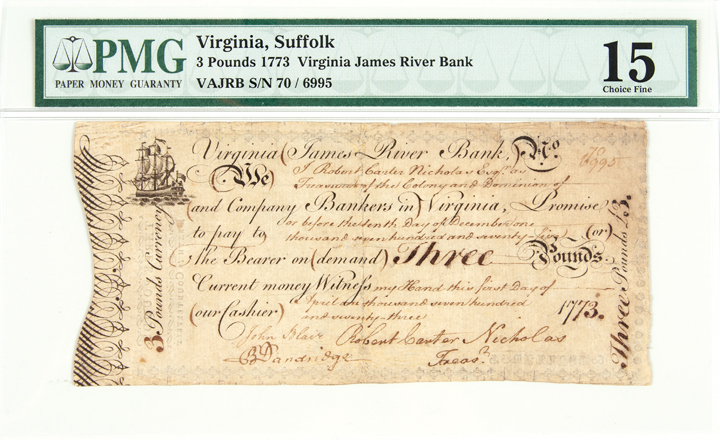 PMG
PAPER MONEY GUARANTY
Virginia, Suffolk
3 Pounds 1773 Virginia James River Bank
VAJRB S/N 70 / 6995
15
Choice Fine
Virginia (James River Bank,) No. 70
6995
(We) I Robert Carter Nicholas Esqr. as
Treasurer of the Colony and Dominion of
(and Company Bankers in) Virginia, Promise
to pay to or before the tenth Day of December one
thousand seven hundred and seventy-five (or)
(the Bearer on (demand) Three Pounds
Current money Witness my Hand this first Day of
(our Cashier) April one thousand seven hundred 1773.
and seventy-three
John Blair Robert Carter Nicholas
B Dandridge Treasr.
3 Pounds Currency
Three Pounds £3.